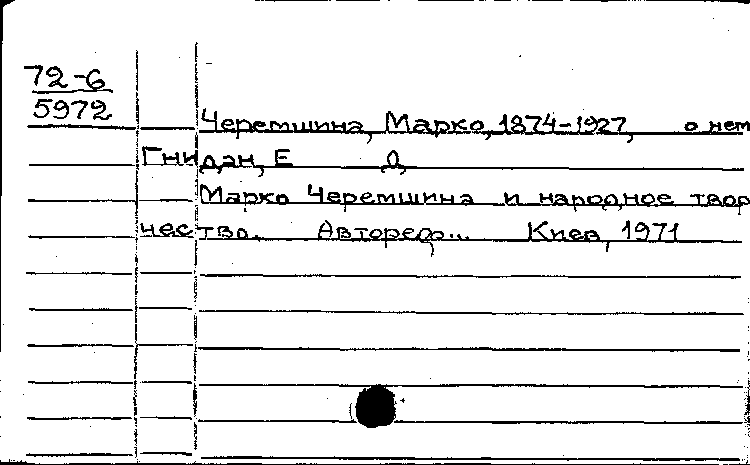 72-6
5972
Черемшина, Марко, 1874-1927, о нем
Гнидан, Е Д
Марко Черемшина и народное твор
чество. Автореф... Киев, 1971